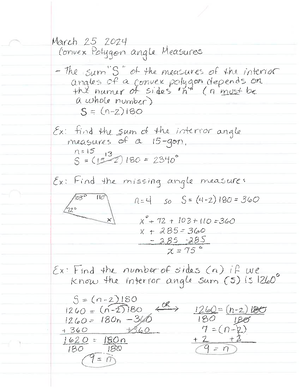 March 25 2024
Convex Polygon angle Measures
- The sum "S" of the measures of the interior
angles of a convex polygon depends on
the numer of sides "n" (n must be
a whole number)
S = (n-2)180
Ex: find the sum of the interior angle
measures of a 15-gon.
n=15
S = (15-2)180 = 2340°
13
Ex: Find the missing angle measure:
103° 110°
72°
n=4 so S = (4-2)180 = 360
x° + 72 + 103 + 110 = 360
x + 285 = 360
- 285 -285
x = 75°
Ex: Find the number of sides (n) if we
know the interior angle sum (S) is 1260°
S = (n-2)180
1260 = (n-2)180
1260 = 180n - 360
+360 +360
1620 = 180n
180 180
9 = n
OR
1260 = (n-2)180
180 180
7 = (n-2)
+2 +2
9 = n